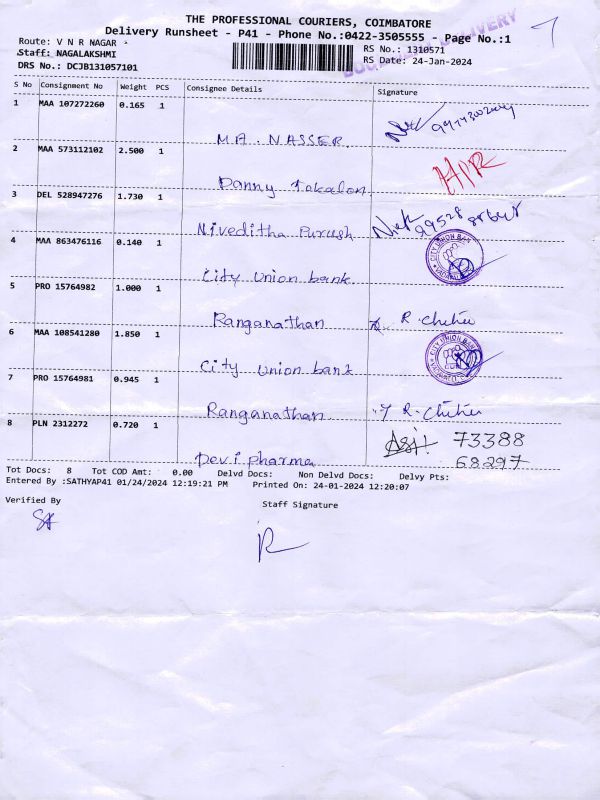 THE PROFESSIONAL COURIERS, COIMBATORE
Delivery Runsheet - P41 - Phone No.:0422-3505555 - Page No.:1
Route: V N R NAGAR
Staff: NAGALAKSHMI
RS No.: 1310571
DRS No.: DCJB131057101
RS Date: 24-Jan-2024
DELIVERY
S No Consignment No Weight PCS Consignee Details Signature
1 MAA 107272260 0.165 1
M.A. NASSER
2 MAA 573112102 2.500 1
Danny Takalon
3 DEL 528947276 1.730 1
Niveditha Purush
4 MAA 863476116 0.140 1
City Union bank
CITY UNION BAN
5 PRO 15764982 1.000 1
Ranganathan R. Chitra
6 MAA 108541280 1.850 1
City Union bank
CITY UNION BAN
7 PRO 15764981 0.945 1
Ranganathan R. Chitra
8 PLN 2312272 0.720 1
Devi pharma
73388
68297
Tot Docs: 8 Tot COD Amt: 0.00 Delvd Docs: Non Delvd Docs: Delvy Pts:
Entered By :SATHYAP41 01/24/2024 12:19:21 PM Printed On: 24-01-2024 12:20:07
Verified By
Staff Signature